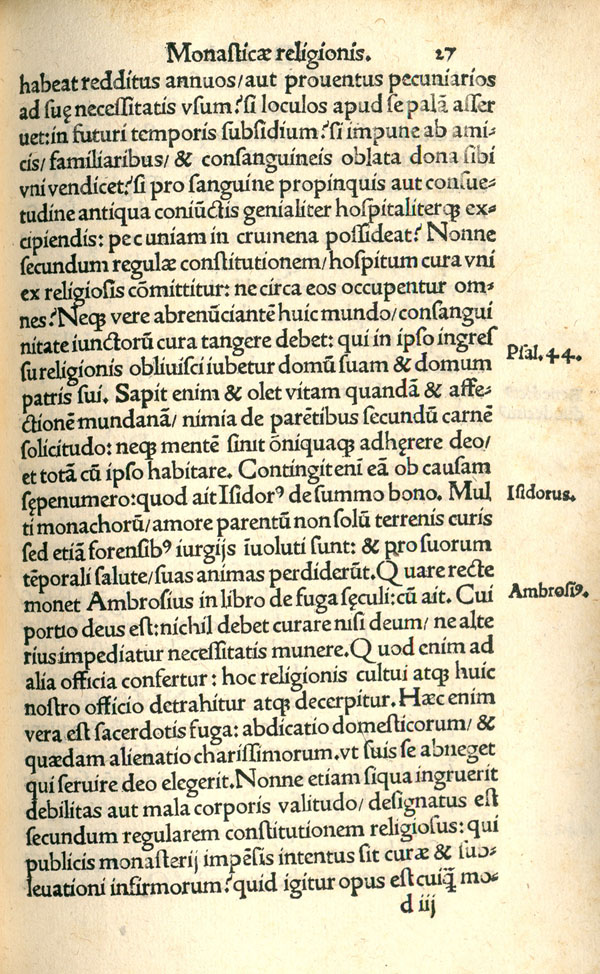 Monasticæ religionis. 27
habeat redditus annuos/aut prouentus pecuniarios
ad suę necessitatis vsum? si loculos apud se palã asser
uet: in futuri temporis subsidium? si impune ab ami-
cis/ familiaribus/ & consanguineis oblata dona sibi
vni vendicet? si pro sanguine propinquis aut consue-
tudine antiqua coniũctis genialiter hospitaliterqꝫ ex-
cipiendis: pecuniam in crumena possideat? Nonne
secundum regulæ constitutionem/hospitum cura vni
ex religiosis cõmittitur: ne circa eos occupentur om-
nes? Neqꝫ vere abrenũciantẽ huic mundo/consangui
nitate iunctorũ cura tangere debet: qui in ipso ingres
su religionis obliuisci iubetur domũ suam & domum
patris sui. Sapit enim & olet vitam quandã & affe-
ctionẽ mundanã/ nimia de parẽtibus secundũ carnẽ
solicitudo: neqꝫ mentẽ sinit õniquaqꝫ adhęrere deo/
et totã cũ ipso habitare. Contingit eni eã ob causam
sępenumero: quod ait Isidorꝰ de summo bono. Mul
ti monachorũ/amore parentũ non solũ terrenis curis
sed etiã forensibꝰ iurgijs ĩuoluti sunt: & pro suorum
tẽporali salute/suas animas perdiderũt. Quare recte
monet Ambrosius in libro de fuga sęculi: cũ ait. Cui
portio deus est: nichil debet curare nisi deum/ ne alte
rius impediatur necessitatis munere. Quod enim ad
alia officia confertur: hoc religionis cultui atqꝫ huic
nostro officio detrahitur atqꝫ decerpitur. Hæc enim
vera est sacerdotis fuga: abdicatio domesticorum/ &
quædam alienatio charissimorum. vt suis se abneget
qui seruire deo elegerit. Nonne etiam siqua ingruerit
debilitas aut mala corporis valitudo/ designatus est
secundum regularem constitutionem religiosus: qui
publicis monasterij impẽsis intentus sit curæ & sub-
leuationi infirmorum? quid igitur opus est cuiq̃ mo-
d iij
Psal. 44.
Isidorus.
Ambrosiꝰ.